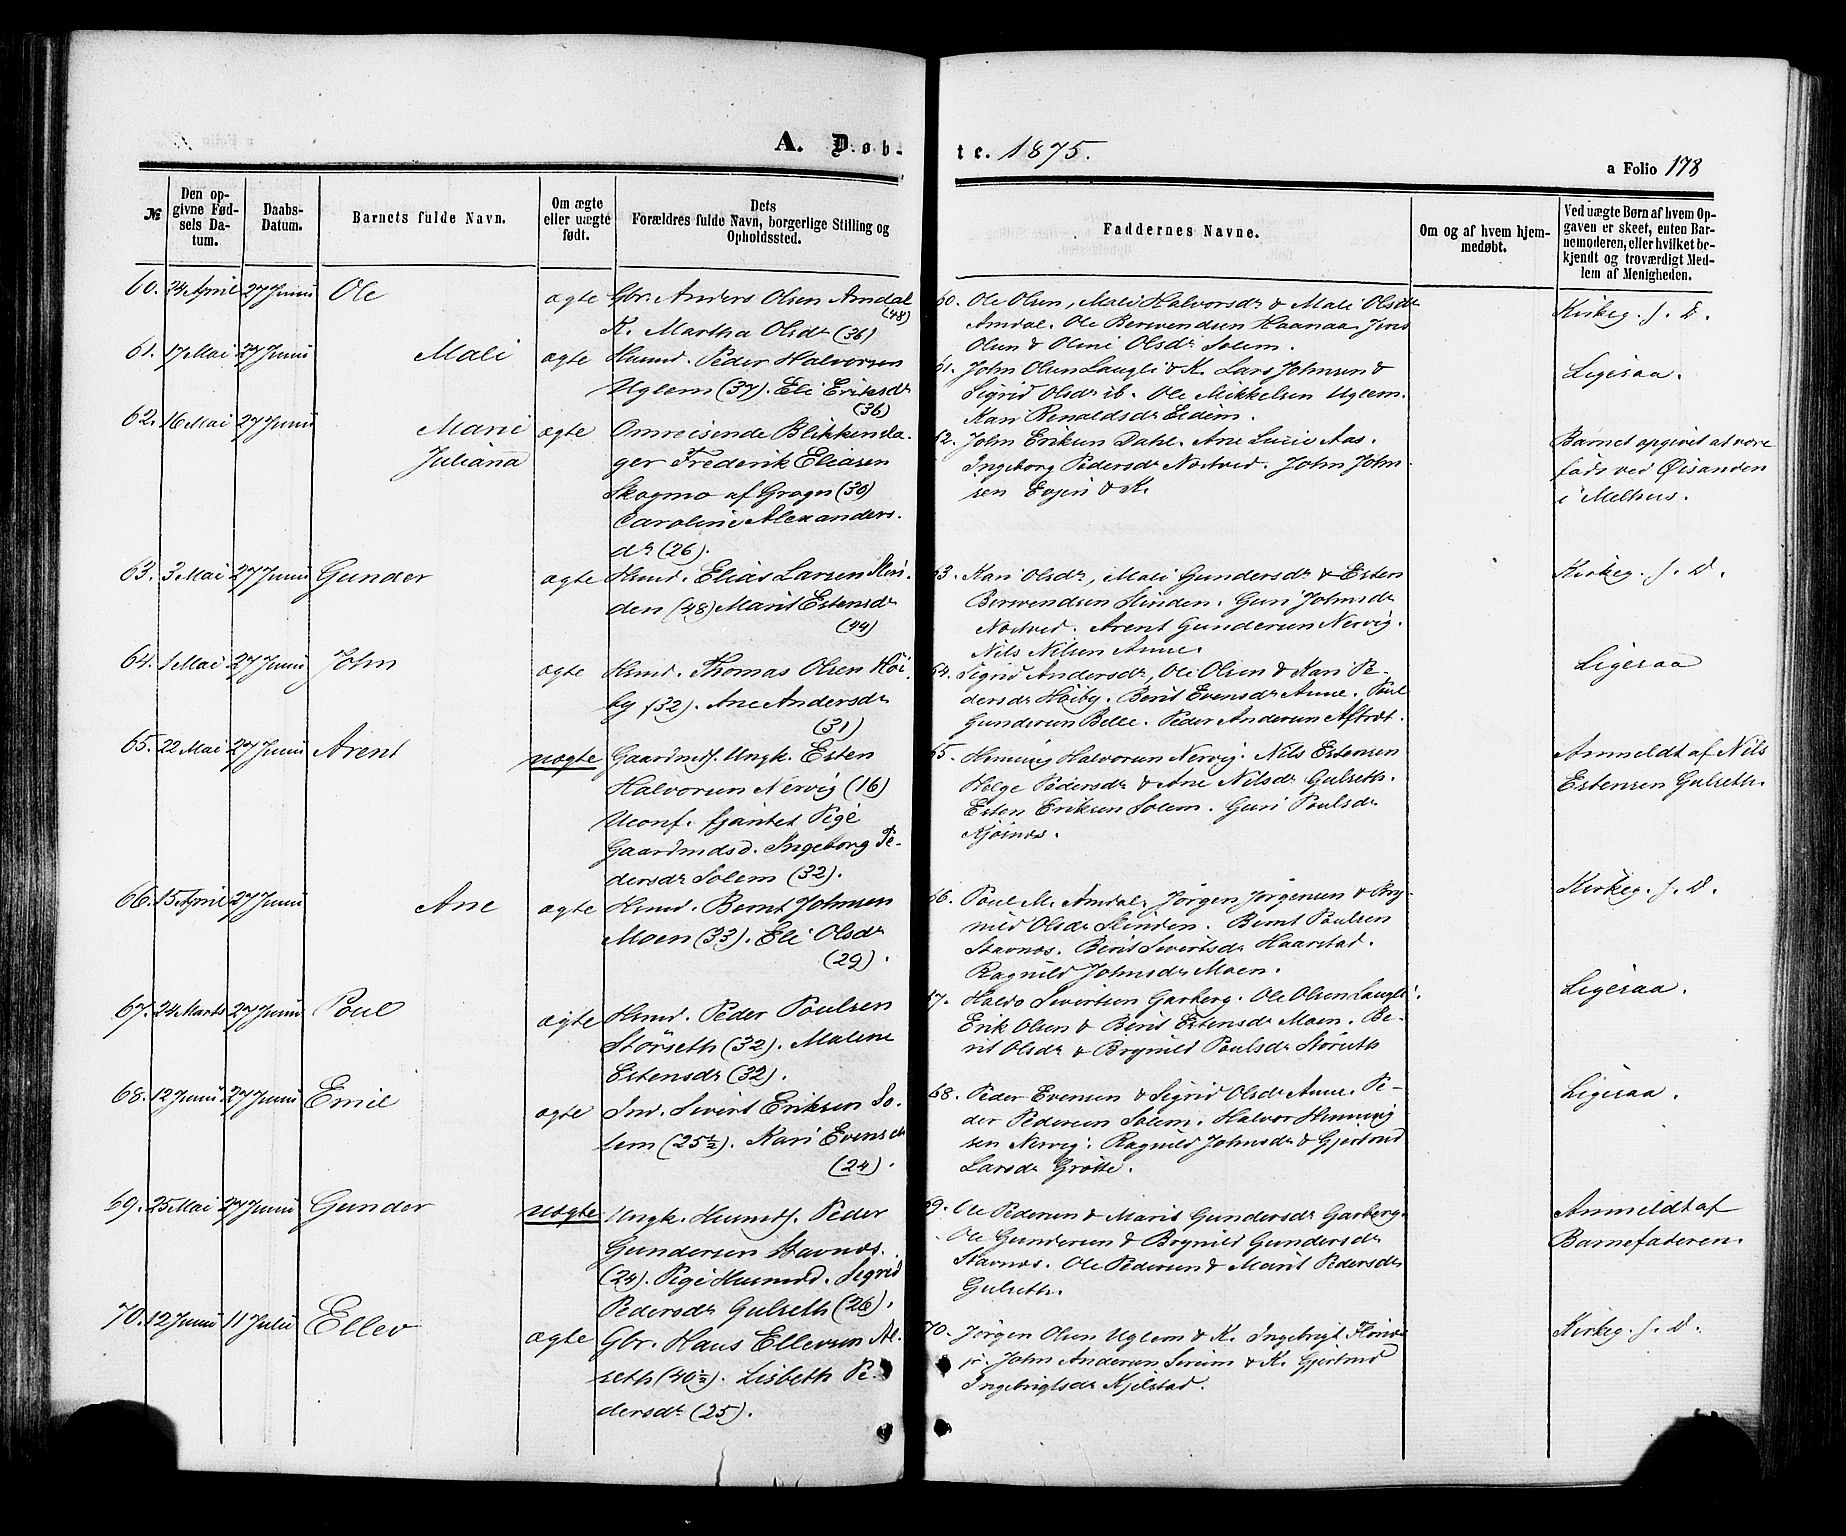 A. Døb-
te. 1875.
a Folio 178
№
Den op-
givne Fød-
sels Da-
tum.
Daabs-
Datum.
Barnets fulde Navn.
Om ægte
eller uægte
født.
Dets
Forældres fulde Navn, borgerlige Stilling og
Opholdssted.
Faddernes Navne.
Om og af hvem hjem-
medøbt.
Ved uægte Børn af hvem Op-
gaven er skeet, enten Bar-
nemoderen, eller hvilket be-
kjendt og troværdigt Med-
lem af Menigheden.
60. 24 April 27 Juni Ole ægte Gbr. Anders Olsen Amdal
(48)
K. Martha Olsdr (36)
60. Ole Olsen, Mali Halvorsdr & Mali Olsdr
Amdal. Ole Berwendsen Haanaa. Jens
Olsen & Oline Olsdr Solem.
Kirkeg. f. D.
61. 17 Mai 27 Juni Mali ægte Husmd. Peder Halvorsen
Uglem (37). Eli Eriksdr
(36)
61. John Olsen Laugli & K. Lars Johnsen &
Sigrid Olsdr ib. Ole Mikkelsen Uglem.
Kari Renaldsdr Eidem.
Ligesaa.
62. 16 Mai 27 Juni Marie
Julianna
ægte Omreisende Blikkensla-
ger Frederik Eliasen
Skogmo af Grogn (30)
Caroline Alexanders-
dr (26).
62. John Eriksen Dahl. Ane Lucie Aas.
Ingeborg Pedersdr Nostved. John John-
sen Evjen & K.
Barnet opgivet at være
født ved Øisanden
i Melhus.
63. 3 Mai 27 Juni Gunder ægte Husmd. Elias Larsen Slin-
den (48) Marit Estensdr
(44)
63. Kari Olsdr, Mali Gundersdr & Esten
Berwendsen Slinden. Guri Johnsdr
Nostved. Arent Gundersen Nervig.
Nils Nilsen Aune.
Kirkeg. f. D.
64. 1 Mai 27 Juni John ægte Husmd. Thomas Olsen Höi-
by (32). Ane Andersdr
(31)
64. Sigrid Andersdr, Ole Olsen & Kari Pe-
dersdr Höiby. Berit Evensdr Aune. Poul
Gundersen Belle. Peder Andersen Aftret.
Ligesaa
65. 22 Mai 27 Juni Arent uægte Gaardmdf. Ungk. Esten
Halvorsen Nervig (16)
Uconf. fjantet Pige
Gaardmdsd. Ingeborg Pe-
dersdr Solem (32).
65. Henning Halvorsen Nervig. Nils Estensen
Helge Pedersdr & Ane Nilsdr Gulseth.
Esten Eriksen Solem. Guri Poulsdr
Kjösnæs.
Anmeldt af Nils
Estensen Gulseth.
66. 15 April 27 Juni Ane ægte Husmd. Bernt Johnsen
Moen (33). Eli Olsdr
(29).
66. Poul M. Amdal. Jörgen Jörgensen & Bry-
nild Olsdr Slinden. Bernt Poulsen
Stavnæs. Berit Sivertsdr Haarstad.
Ragnild Johnsdr Moen.
Kirkeg. f. D.
67. 24 Marts 27 Juni Poul ægte Husmd. Peder Poulsen
Störseth (32). Malene
Estensdr (32).
67. Haldo Sivertsen Garberg. Ole Olsen Laugli.
Erik Olsen & Berit Estensdr Moen. Be-
rit Olsdr & Brynild Poulsdr Störseth
Ligesaa.
68. 12 Juni 27 Juni Emil ægte Ind. Sivert Eriksen So-
lem (25½). Kari Evensdr
(24).
68. Peder Evensen & Sigrid Olsdr Aune. Pe-
der Pedersen Solem. Halvor Henning-
sen Nervig. Ragnild Johnsdr & Gjertrud
Larsdr Grötte.
Ligesaa.
69. 25 Mai 27 Juni Gunder uægte Ungk. Husmdf. Peder
Gundersen Stavnæs.
(24). Pige Husmd. Sigrid
Pedersdr Gulseth (26).
69. Ole Pedersen & Marit Gundersdr Garberg.
Ole Gundersen & Brynild Gundersdr
Stavnæs. Ole Pedersen & Marit Pedersdr
Gulseth.
Anmeldt af
Barnefaderen.
70. 12 Juni 11 Juli Ellev ægte Gbr. Hans Ellevsen Al-
seth (40½). Lisbeth Pe-
dersdr (25).
70. Jörgen Olsen Uglem & K. Ingebrigt Flönæs
jr. John Andersen Sveim & K. Gjertrud
Ingebrigtsdr Kjelstad.
Kirkeg. f. D.